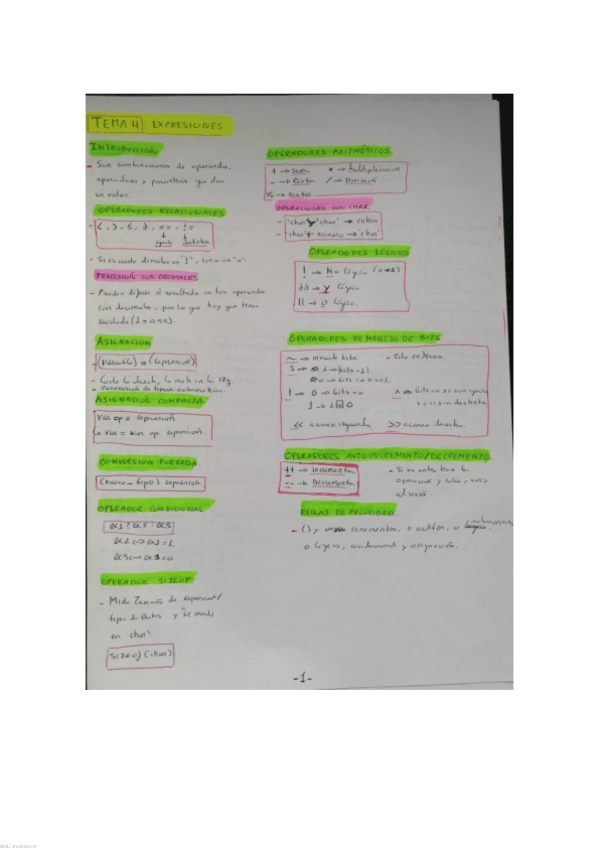 TEMA 4 EXPRESIONES
INTRODUCCIÓN
- Son combinaciones de operandos,
operadores y paréntesis que dan
un valor.
OPERADORES RELACIONALES
<, >, ≤, ≥, ==, !=
igual distinto
- Si es verdad devuelve un "1", si no un "0".
PRECISIÓN CON DECIMALES
- Pueden el resultado en los operandos
con decimales, por lo que hay que tener
cuidado (1 = 0,99).
ASIGNACION
(variable) = (expresión)
- Code la derecha, la mete en la izq.
- Conversión de tipos automática.
ASIGNACIÓN COMPACTA
Var op = expresión
var = var op expresión.
CONVERSION FORZADA
(nuevo_tipo) expresión
OPERADOR CONDICIONAL
OPERADOR SIZEOF
- Mide Tamaño de expresión/
tipo de datos y se mide
en char!
Sizeof (char)
OPERADORES ARITMÉTICOS
+ → Suma * → Multiplicación
- → Resta / → División
% → Resto
OPERACIONES CON CHAR
- 'char' y 'char' → entero
- 'char' + número → 'char'
OPERADORES LÓGICOS
! → No lógico
&& → Y lógico
|| → O lógico.
OPERADORES DE MANEJO DE BITS
~ → invierte bits - Solo enteros
<< acarreo izquierda >> acarreo derecha
OPERADORES AUTOINCREMENTO/DECREMENTO
++ → Incrementa
-- → Decrementa
- Si va antes hace la
operación y luego, usa
el valor.
REGLAS DE PRIORIDAD.
- (), incrementos, o aritm, o relacionales,
o lógicos, condicional y asignación.
-1-